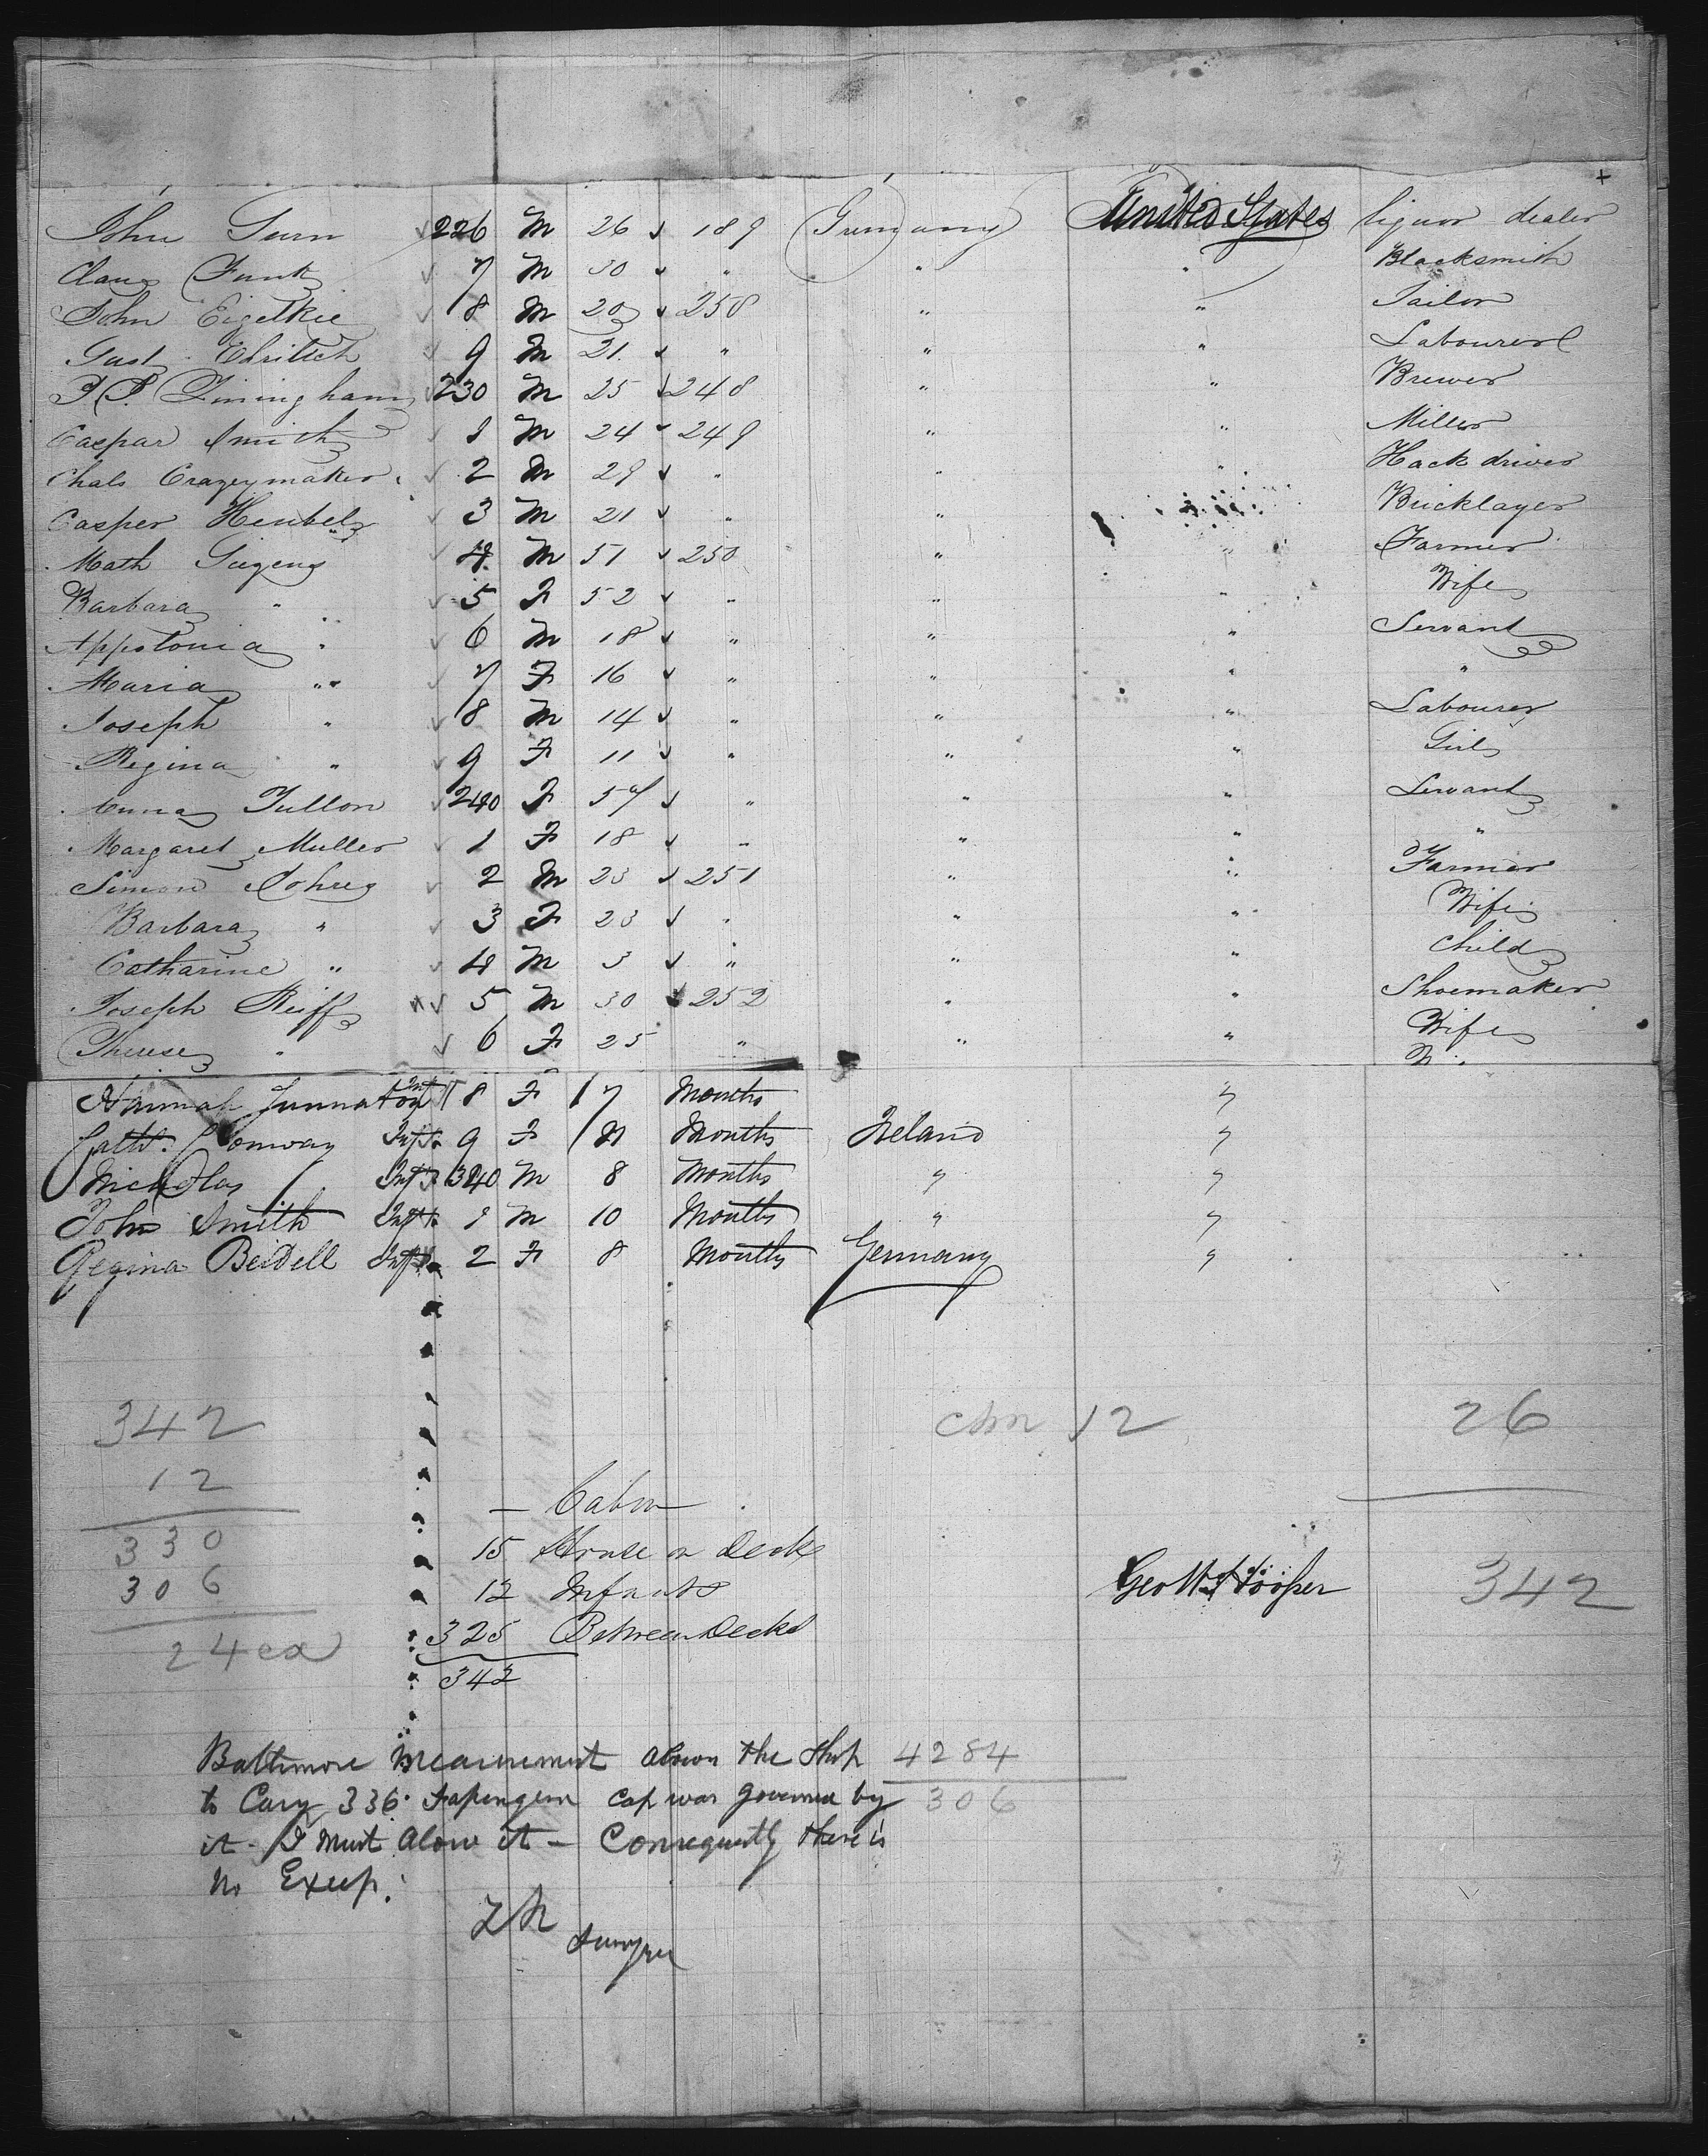 John Turn 226 M 26 189 Germany United States liquor dealer
Claus Funk 7 M 30 " " " Blacksmith
John Eigelkie 8 M 20 250 " " Tailor
Gust Ehritch 9 M 21 " " " Labourer
P. P. Finingham 230 M 25 248 " " Brewer
Caspar Smith 1 M 24 249 " " Miller
Chals Crazeymaker 2 M 29 " " " Hack driver
Casper Heubel 3 M 21 " " " Bricklayer
Math 4 M 51 250 " " Farmer
Barbara " 5 F 52 " " " Wife
Appolonia " 6 M 18 " " " Servant
Maria " 7 F 16 " " " "
Joseph " 8 M 14 " " " Labourer
Regina " 9 F 11 " " " Girl
Anna Tullon 240 F 57 " " " Servant
Margaret Muller 1 F 18 " " " "
Simon 2 M 23 251 " " Farmer
Barbara " 3 F 23 " " " Wife
Catharine " 4 M 3 " " " Child
Joseph Reiff 5 M 30 252 " " Shoemaker
Therese " 6 F 25 " " " Wife
Hannah 8 F 7 Months "
Cath. Conway Inft. 9 F 11 Months Ireland "
Nicholas Inft. 340 M 8 Months " "
John Smith Inft. 1 M 10 Months " "
Regina Beidell Inft. 2 F 8 Months Germany "
342 12 26
12
— Cabin
330
15 House on Deck
306
12 Infants
Geo W. Hooper 342
325 Between Decks
24 ex
342
Baltimore Measurement allows the Ship 4284
to Cary 336 Capt was governed by 306
it - I Must Alow it - Consequently there is
No Excep.